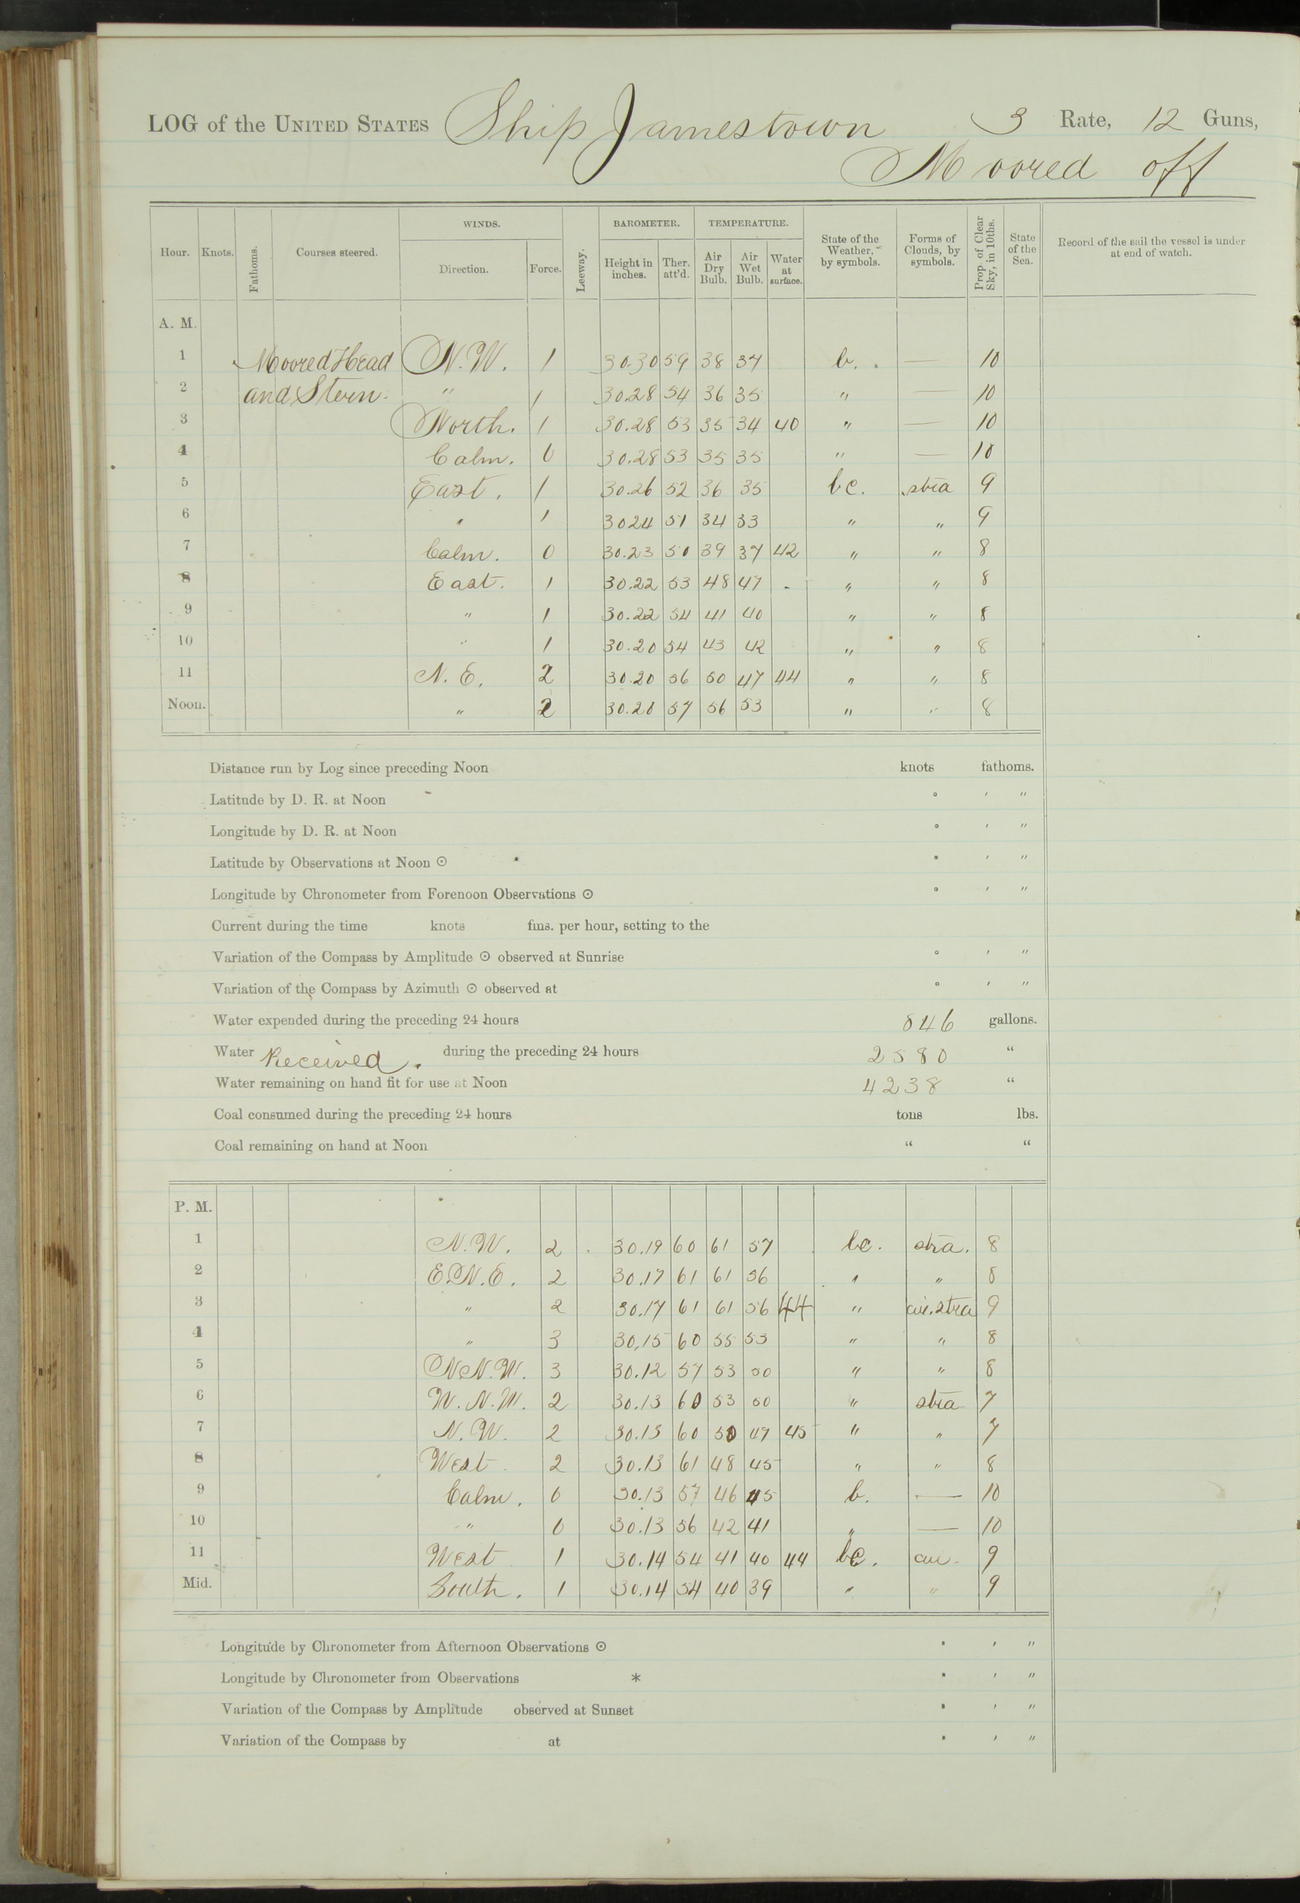 LOG of the UNITED STATES Ship Jamestown 3 Rate, 12 Guns,
Moored off
Hour. Knots. Fathoms. Courses steered. WINDS. Direction. Force. Leeway. BAROMETER. Height in inches. Ther. att'd. TEMPERATURE. Air Dry Bulb. Air Wet Bulb. Water at surface. State of the Weather, by symbols. Forms of Clouds, by symbols. Prop. of Clear Sky, in 10ths. State of the Sea. Record of the sail the vessel is under at end of watch.
A. M.
1 Moored Head N.W. 1 30.30 59 38 37 b. — 10
2 and Stern. " 1 30.28 54 36 35 " — 10
3 North. 1 30.28 53 35 34 40 " — 10
4 Calm. 0 30.28 53 35 35 " — 10
5 East. 1 30.26 52 36 35 bc. stra 9
6 " 1 3024 51 34 33 " " 9
7 Calm. 0 30.23 50 39 37 42 " " 8
8 East. 1 30.22 53 48 47 - " " 8
9 " 1 30.22 54 41 40 " " 8
10 " 1 30.20 54 43 42 " " 8
11 N.E. 2 30.20 56 50 47 44 " " 8
Noon. " 2 30.20 57 56 53 " " 8
Distance run by Log since preceding Noon knots fathoms.
Latitude by D. R. at Noon ° ' "
Longitude by D. R. at Noon ° ' "
Latitude by Observations at Noon ☉ ° ' "
Longitude by Chronometer from Forenoon Observations ☉ ° ' "
Current during the time knots fms. per hour, setting to the
Variation of the Compass by Amplitude ☉ observed at Sunrise ° ' "
Variation of the Compass by Azimuth ☉ observed at ° ' "
Water expended during the preceding 24 hours 846 gallons.
Water Received. during the preceding 24 hours 2580 "
Water remaining on hand fit for use at Noon 4238 "
Coal consumed during the preceding 24 hours tons lbs.
Coal remaining on hand at Noon " "
P. M.
1 N.W. 2 30.19 60 61 57 bc. stra. 8
2 E.N.E. 2 30.17 61 61 56 " " 8
3 " 2 30.17 61 61 56 44 " cir.stra 9
4 " 3 30.15 60 55 53 " " 8
5 N.N.W. 3 30.12 57 53 50 " " 8
6 W.N.W. 2 30.13 60 53 50 " stra 7
7 N.W. 2 30.13 60 50 47 45 " " 7
8 West 2 30.13 61 48 45 " " 8
9 Calm. 0 30.13 57 46 45 b. — 10
10 " 0 30.13 56 42 41 " — 10
11 West 1 30.14 54 41 40 44 bc. cir. 9
Mid. South. 1 30.14 54 40 39 " " 9
Longitude by Chronometer from Afternoon Observations ☉ ° ' "
Longitude by Chronometer from Observations * ° ' "
Variation of the Compass by Amplitude observed at Sunset ° ' "
Variation of the Compass by at ° ' "